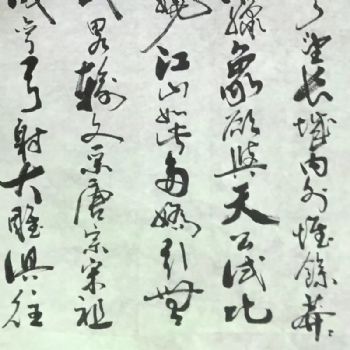 望长城内外惟馀莽莽
象欲與天公试比
娆江山如此多嬌引無
略输文采唐宗宋祖
弯弓射大雕俱往